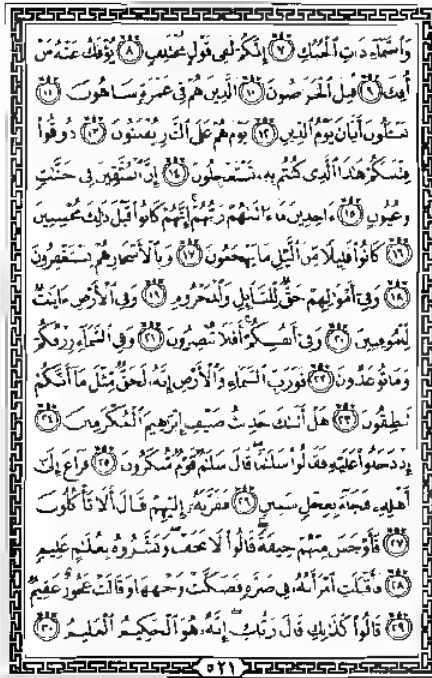 وَٱلسَّمَآءِ ذَاتِ ٱلْحُبُكِ ٧ إِنَّكُمْ لَفِى قَوْلٍ مُّخْتَلِفٍ ٨ يُؤْفَكُ عَنْهُ مَنْ
أُفِكَ ٩ قُتِلَ ٱلْخَرَّٰصُونَ ١٠ ٱلَّذِينَ هُمْ فِى غَمْرَةٍ سَاهُونَ ١١
يَسْـَٔلُونَ أَيَّانَ يَوْمُ ٱلدِّينِ ١٢ يَوْمَ هُمْ عَلَى ٱلنَّارِ يُفْتَنُونَ ١٣ ذُوقُوا۟
فِتْنَتَكُمْ هَٰذَا ٱلَّذِى كُنتُم بِهِۦ تَسْتَعْجِلُونَ ١٤ إِنَّ ٱلْمُتَّقِينَ فِى جَنَّٰتٍ
وَعُيُونٍ ١٥ ءَاخِذِينَ مَآ ءَاتَىٰهُمْ رَبُّهُمْ إِنَّهُمْ كَانُوا۟ قَبْلَ ذَٰلِكَ مُحْسِنِينَ
١٦ كَانُوا۟ قَلِيلًا مِّنَ ٱلَّيْلِ مَا يَهْجَعُونَ ١٧ وَبِٱلْأَسْحَارِ هُمْ يَسْتَغْفِرُونَ
١٨ وَفِىٓ أَمْوَٰلِهِمْ حَقٌّ لِّلسَّآئِلِ وَٱلْمَحْرُومِ ١٩ وَفِى ٱلْأَرْضِ ءَايَٰتٌ
لِّلْمُوقِنِينَ ٢٠ وَفِىٓ أَنفُسِكُمْ أَفَلَا تُبْصِرُونَ ٢١ وَفِى ٱلسَّمَآءِ رِزْقُكُمْ
وَمَا تُوعَدُونَ ٢٢ فَوَرَبِّ ٱلسَّمَآءِ وَٱلْأَرْضِ إِنَّهُۥ لَحَقٌّ مِّثْلَ مَآ أَنَّكُمْ
تَنطِقُونَ ٢٣ هَلْ أَتَىٰكَ حَدِيثُ ضَيْفِ إِبْرَٰهِيمَ ٱلْمُكْرَمِينَ ٢٤
إِذْ دَخَلُوا۟ عَلَيْهِ فَقَالُوا۟ سَلَٰمًا قَالَ سَلَٰمٌ قَوْمٌ مُّنكَرُونَ ٢٥ فَرَاغَ إِلَىٰٓ
أَهْلِهِۦ فَجَآءَ بِعِجْلٍ سَمِينٍ ٢٦ فَقَرَّبَهُۥٓ إِلَيْهِمْ قَالَ أَلَا تَأْكُلُونَ
٢٧ فَأَوْجَسَ مِنْهُمْ خِيفَةً قَالُوا۟ لَا تَخَفْ وَبَشَّرُوهُ بِغُلَٰمٍ عَلِيمٍ
٢٨ فَأَقْبَلَتِ ٱمْرَأَتُهُۥ فِى صَرَّةٍ فَصَكَّتْ وَجْهَهَا وَقَالَتْ عَجُوزٌ عَقِيمٌ
٢٩ قَالُوا۟ كَذَٰلِكِ قَالَ رَبُّكِ إِنَّهُۥ هُوَ ٱلْحَكِيمُ ٱلْعَلِيمُ ٣٠
٥٢١